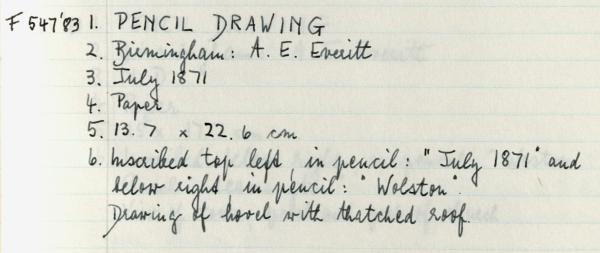 F 547'83 1. PENCIL DRAWING
2. Birmingham: A. E. Everitt
3. July 1871
4. Paper
5. 13.7 x 22.6 cm
6. Inscribed top left, in pencil: "July 1871" and
below right in pencil: "Wolston".
Drawing of hovel with thatched roof.